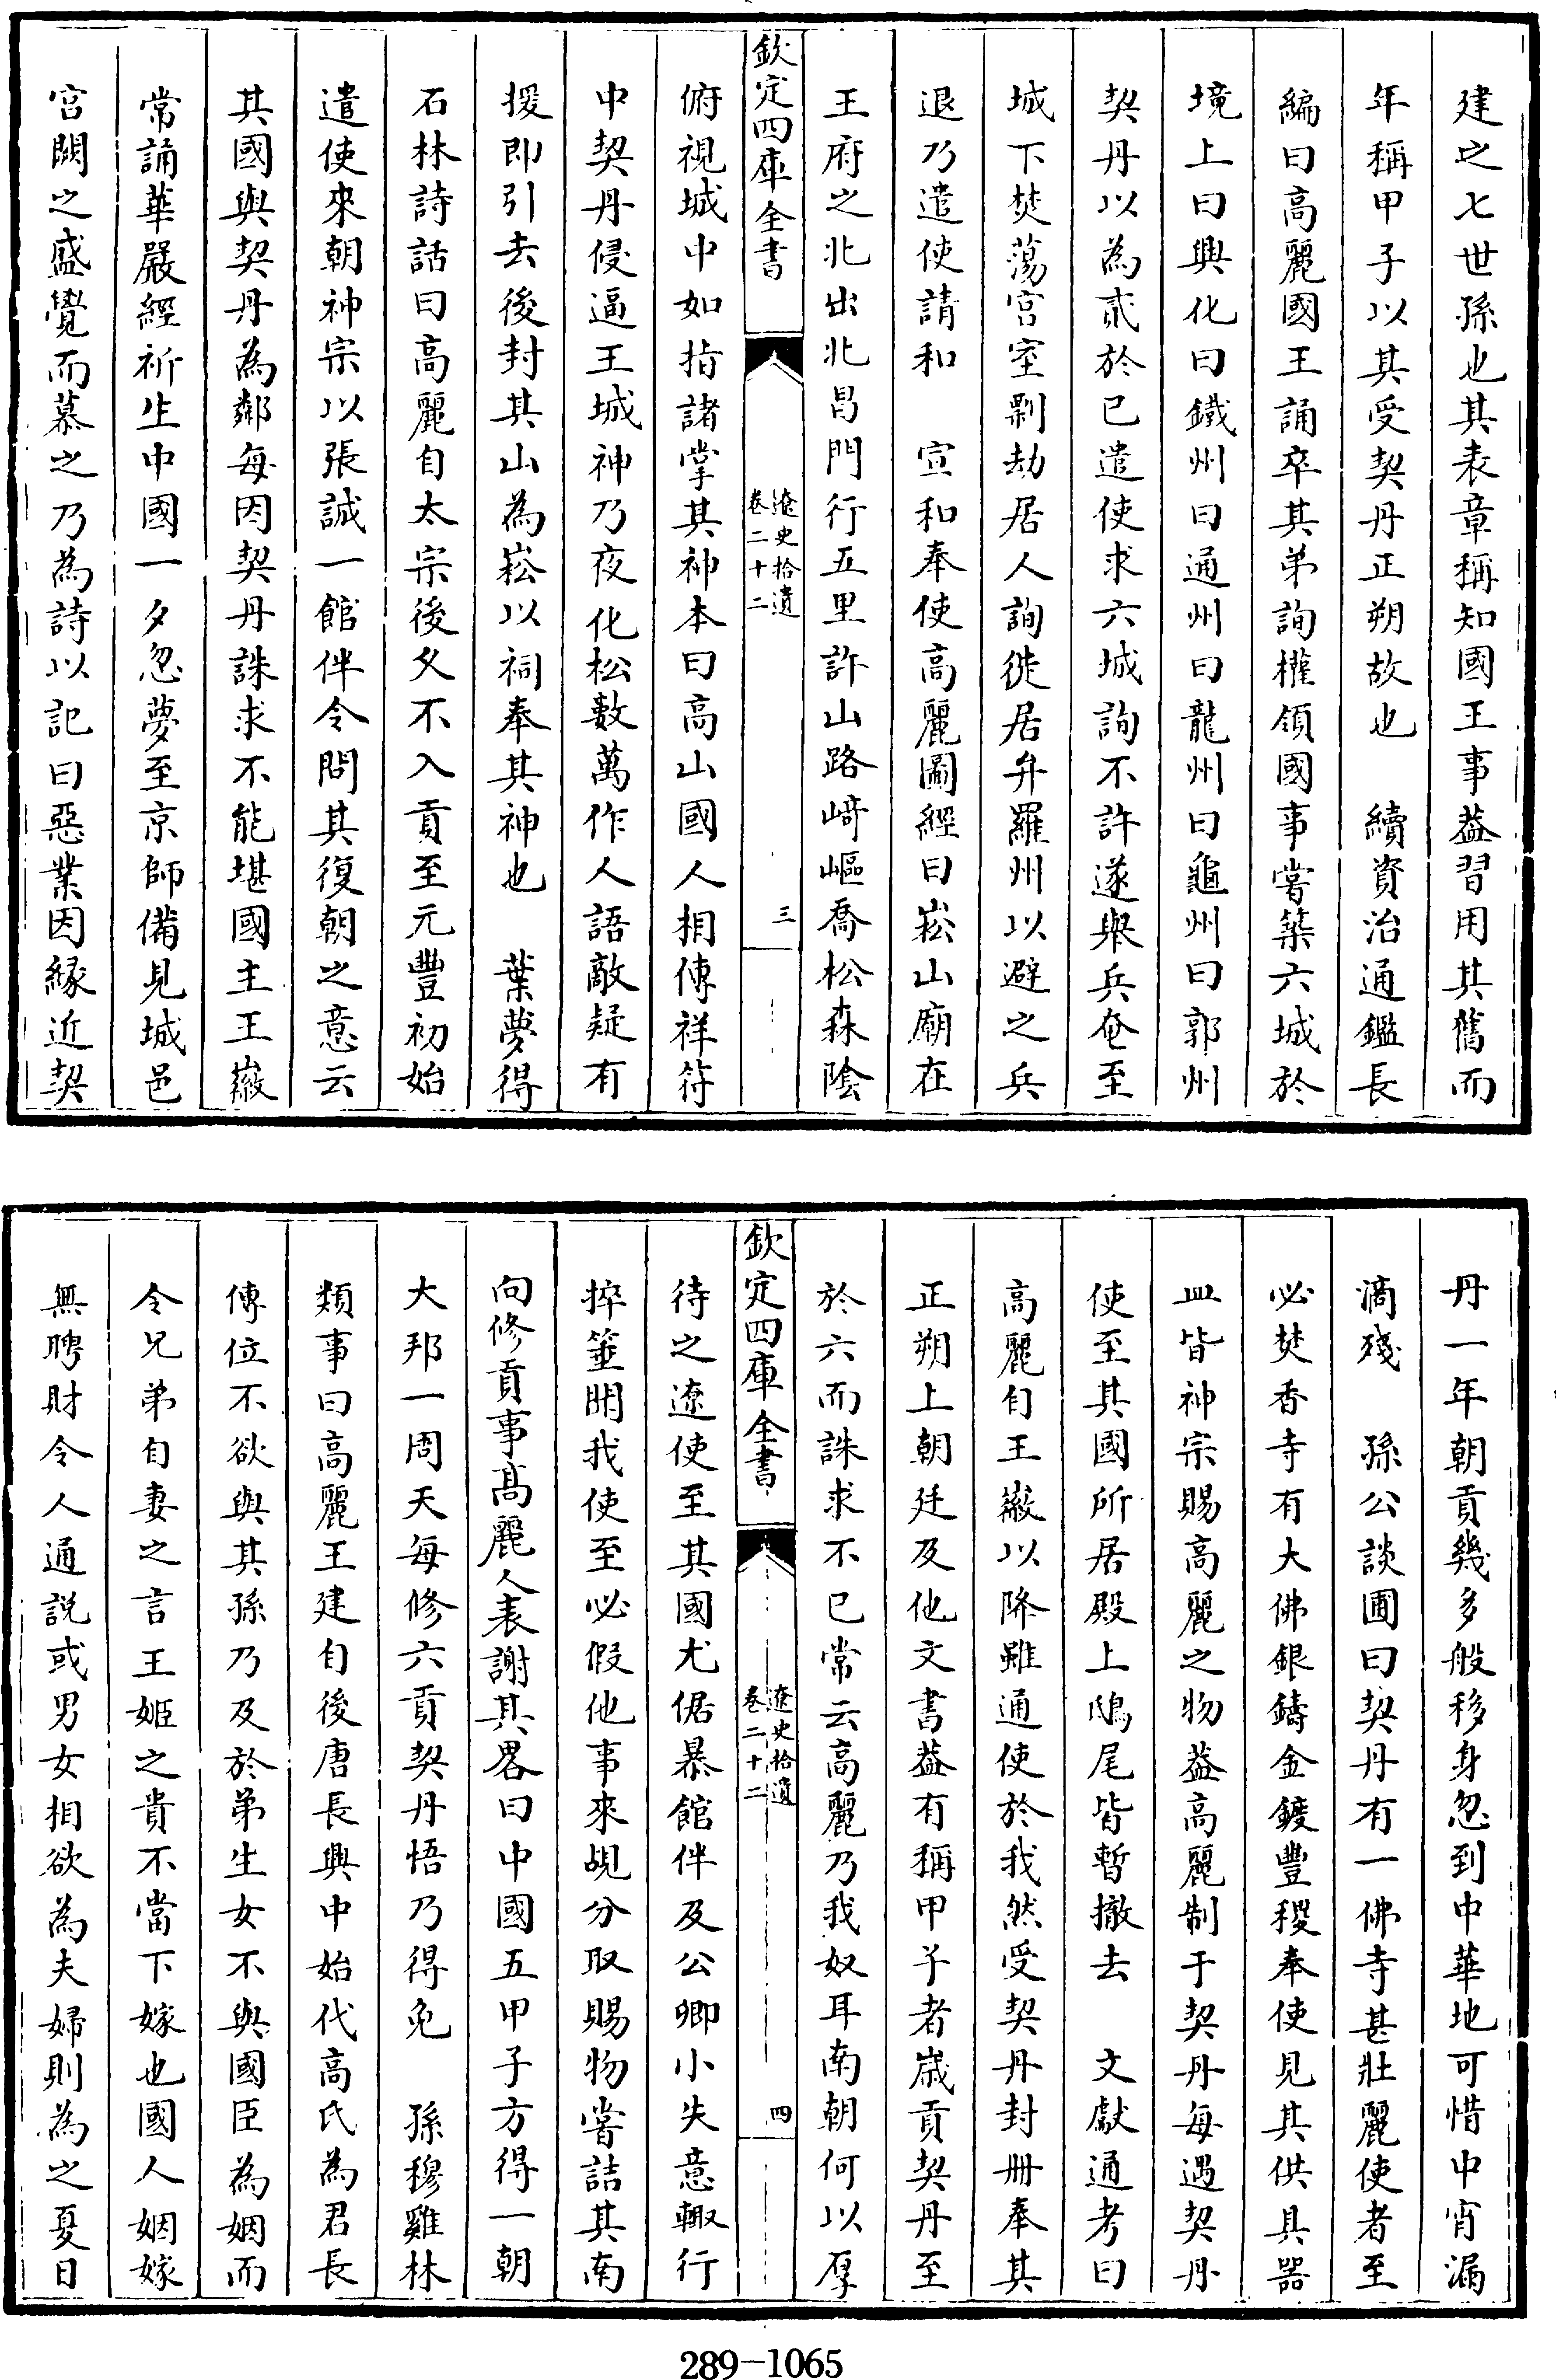 建之七世孫也其表章稱知國王事葢習用其舊而
年稱甲子以其受契丹正朔故也　續資治通鑑長
編曰高麗國王誦卒其弟詢權領國事嘗築六城於
境上曰興化曰鐵州曰通州曰龍州曰龜州曰郭州
契丹以為貳於已遣使求六城詢不許遂舉兵奄至
城下焚蕩宫室剽劫居人詢徙居弁羅州以避之兵
退乃遣使請和　宣和奉使高麗圖經曰崧山廟在
王府之北出北昌門行五里許山路﨑嶇喬松森隂
欽定四庫全書
遼史拾遺
卷二十二
三
俯視城中如指諸掌其神本曰高山國人相傳祥符
中契丹侵逼王城神乃夜化松數萬作人語敵疑有
援即引去後封其山為崧以祠奉其神也　葉夢得
石林詩話曰高麗自太宗後久不入貢至元豐初始
遣使來朝神宗以張誠一館伴令問其復朝之意云
其國與契丹為鄰每因契丹誅求不能堪國主王徽
常誦華嚴經祈生中國一夕忽夢至京師備見城邑
宫闕之盛覺而慕之乃為詩以記曰惡業因緣近契
丹一年朝貢幾多般移身忽到中華地可惜中宵漏
滴殘　孫公談圃曰契丹有一佛寺甚壯麗使者至
必焚香寺有大佛銀鑄金鍍豐稷奉使見其供具器
皿皆神宗賜高麗之物葢高麗制于契丹每遇契丹
使至其國所居殿上鴟尾皆暫撤去　文獻通考曰
高麗自王徽以降雖通使於我然受契丹封冊奉其
正朔上朝廷及他文書葢有稱甲子者嵗貢契丹至
於六而誅求不已常云高麗乃我奴耳南朝何以厚
欽定四庫全書
遼史拾遺
卷二十二
四
待之遼使至其國尤倨暴館伴及公卿小失意輙行
捽箠聞我使至必假他事來覘分取賜物嘗詰其南
向修貢事髙麗人表謝其畧曰中國五甲子方得一朝
大邦一周天每修六貢契丹悟乃得免　孫穆雞林
類事曰高麗王建自後唐長興中始代高氏為君長
傳位不欲與其孫乃及於弟生女不與國臣為姻而
令兄弟自妻之言王姬之貴不當下嫁也國人姻嫁
無聘財令人通説或男女相欲為夫婦則為之夏日
289-1065